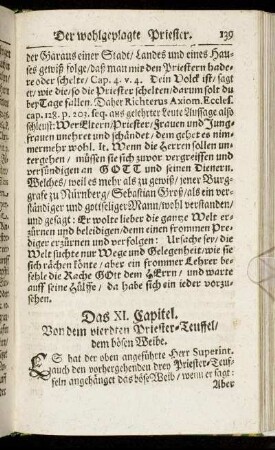 Der wohlgeplagte Priester. 139
der Garaus einer Stadt / Landes und eines Hau-
ses gewiß folge / daß man mit den Priestern hade-
re oder schelte / Cap. 4. v. 4. Dein Volck ist / sagt
er / wie die / so die Priester schelten / darum solt du
bey Tage fallen. Daher Richterus Axiom. Eccles.
cap. 128. p. 203. seq. aus gelehrter Leute Aussage also
schleust: Wer Eltern / Priester / Frauen und Jung-
frauen unehret und schändet / dem gehet es nim-
mermehr wohl. It. Wenn die Herren sollen un-
tergehen / müssen sie sich zuvor vergreiffen und
versündigen an GOTT und seinen Dienern.
Welches / weil es mehr als zu gewiß / jener Burg-
grafe zu Nürnberg / Sebastian Groß / als ein ver-
ständiger und gottseliger Mann / wohl verstanden /
und gesagt: Er wolte lieber die gantze Welt er-
zürnen und beleidigen / denn einen frommen Pre-
diger erzürnen und verfolgen: Ursache sey / die
Welt suchte nur Wege und Gelegenheit / wie sie
sich rächen könte / aber ein frommer Lehrer befeh-
le die Rache GOtt dem HErrn / und warte
auff seine Hülffe / da habe sich ein ieder vorzu-
sehen.
Das XI. Capitel.
Von dem vierdten Priester-Teuffel /
dem bösen Weibe.
ES hat der oben angeführte Herr Superint.
auch den vorhergehenden drey Priester-Teuf-
feln angehänget das böse Weib / wenn er sagt:
Aber